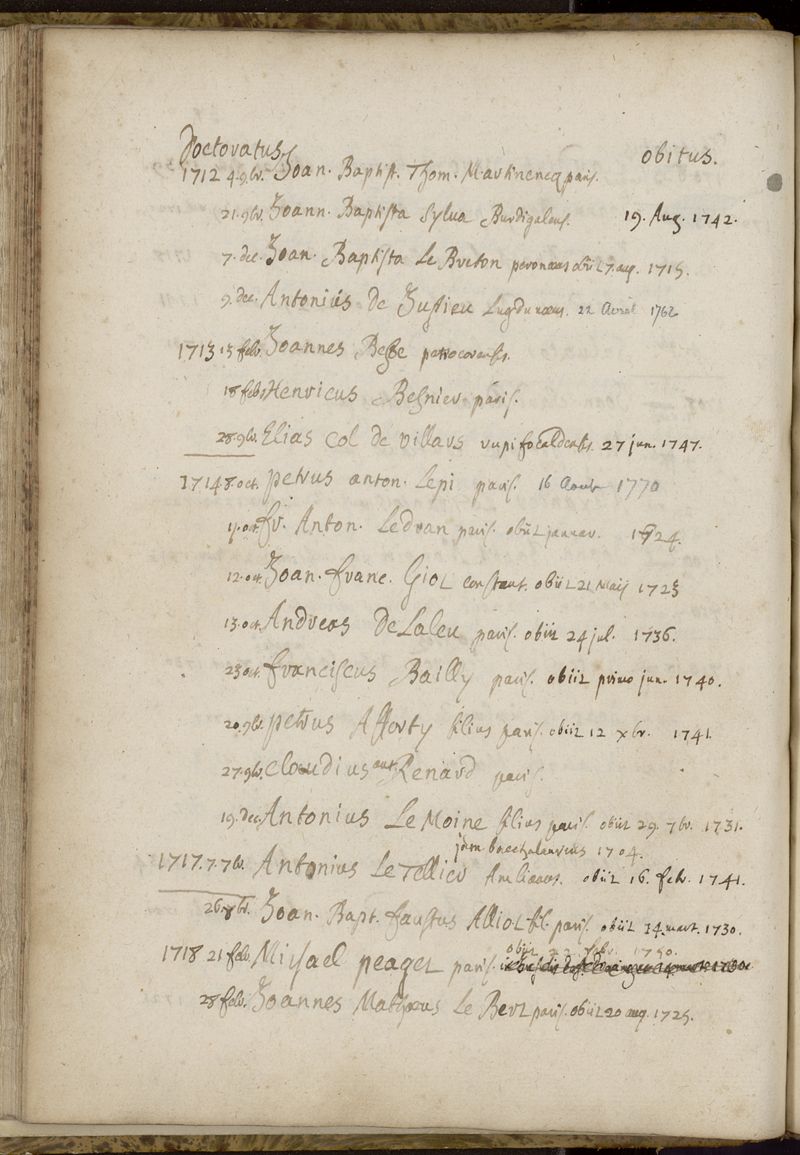 Doctoratus obitus.
1712 4. 9br. Joan. Baptist. Thom. Martinencq paris.
21. 9br. Joann. Baptista Sylva Burdigalens. 19. Aug. 1742.
7. dec. Joan. Baptista Le Breton peronaeus obiit 7. aug. 1715.
9. dec. Antonius de Jussieu Lugdunaeus. 22 Avril 1762
1713 13 feb. Joannes Besse petrocorensis.
18 feb. Henricus Besnier paris.
28. 9br. Elias Col de Villars rupifocaldensis. 27 jun. 1747.
1714 8. oct. petrus anton. Lepi paris. 16 Aoust 1770
11. oct. fr. Anton. Ledran paris. obiit januar. 1724.
12. oct. Joan. franc. Giot constant. obiit 21 Maij 1723
13. oct. Andreas De Laleu paris. obiit 24 jul. 1736.
23 oct. franciscus Bailly paris. obiit primo jun. 1740.
20. 9br. petrus Afforty filius paris. obiit 12 xbr. 1741.
27. 9br. claudius ant. Renard paris.
19. Dec. Antonius Le Moine filius paris. obiit 29. 7br. 1731.
jam baccalaureus 1704.
1717. 7. 7br. Antonius Le Tellier Ambianus. obiit 16. febr. 1741.
26. 8br. Joan. Bapt. faustus Alliot fil. paris. obiit 14. mart. 1730.
obiit 22 7br. 1750.
1718 21 feb. Misael peaget paris.
28 feb. Joannes Mathaeus Le Bert paris. obiit 20 aug. 1725.